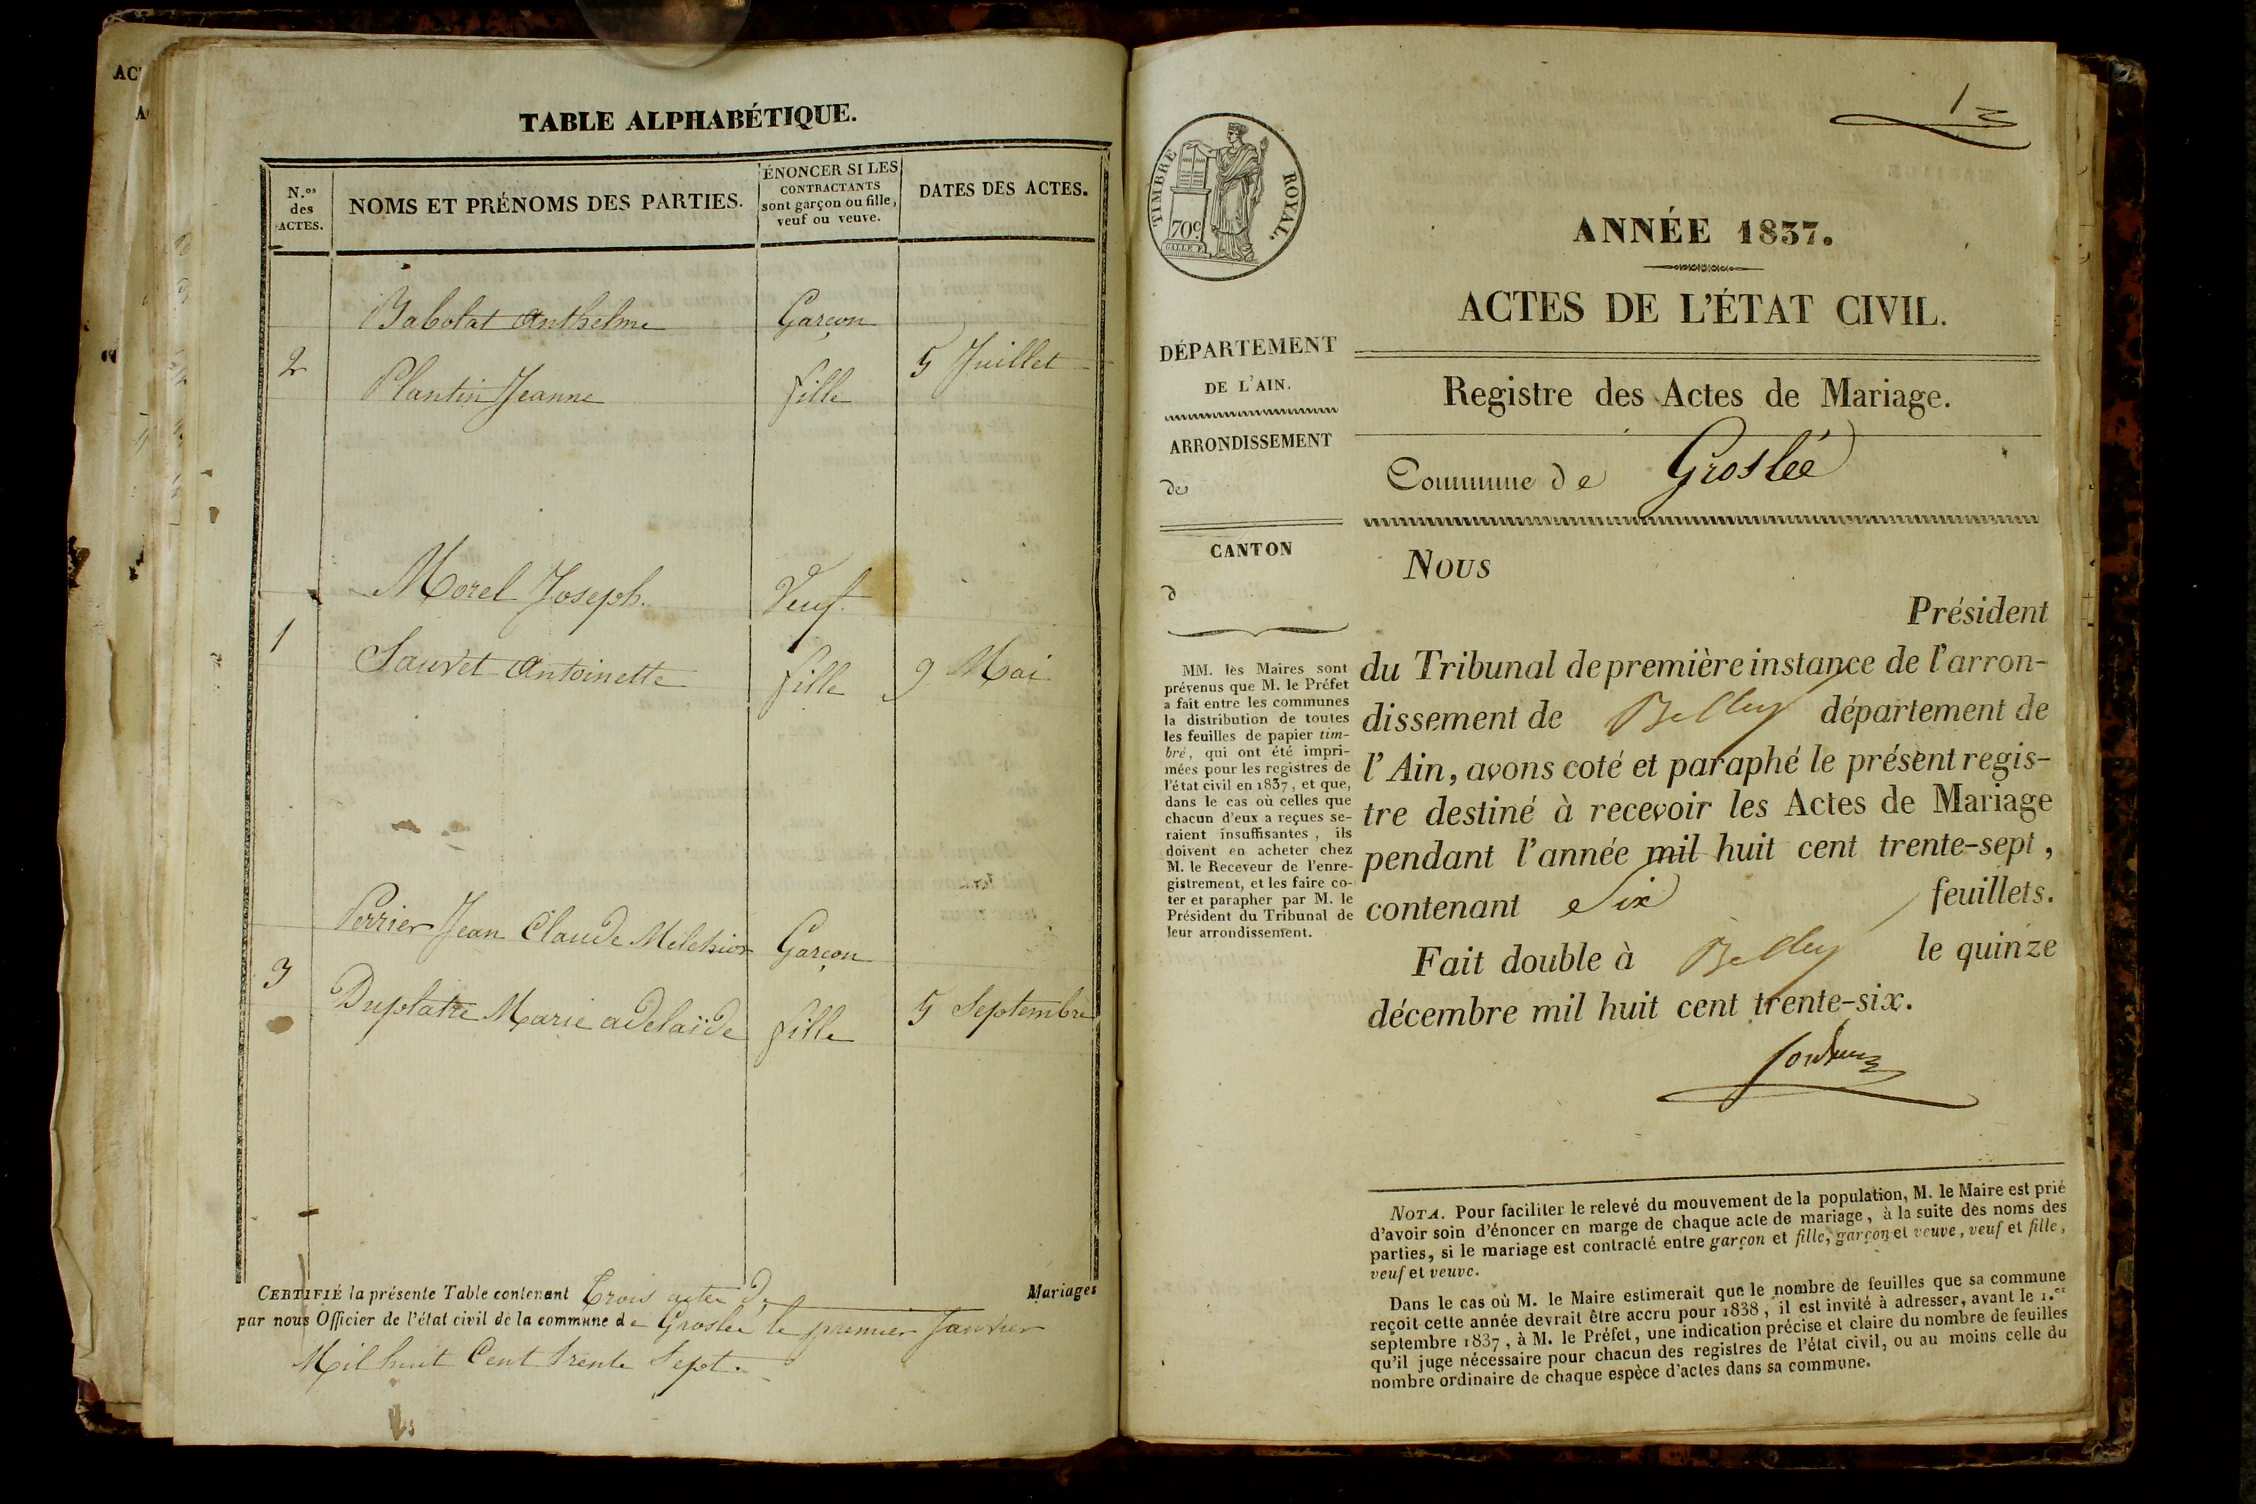 AC
A
TABLE ALPHABÉTIQUE.
N.os des ACTES.
NOMS ET PRÉNOMS DES PARTIES.
ÉNONCER SI LES
CONTRACTANTS
sont garçon ou fille,
veuf ou veuve.
DATES DES ACTES.
Babolat Anthelme Garçon
2 5 Juillet
Plantin Jeanne fille
Morel Joseph. Veuf.
1
Sauvet Antoinette fille 9 Mai
Perrier Jean Claude Melchior Garçon
3
Duplatre Marie adelaïde fille 5 Septembre
CERTIFIÉ la présente Table contenant Trois actes de Mariages
par nous Officier de l'état civil de la commune de Groslée le premier Janvier
Mil huit Cent trente Sept.
1
TIMBRE ROYAL.
70c.
ANNÉE 1837.
ACTES DE L'ÉTAT CIVIL.
DÉPARTEMENT
DE L'AIN.
Registre des Actes de Mariage.
ARRONDISSEMENT
de
Commune de Groslée
CANTON
d
MM. les Maires sont
prévenus que M. le Préfet
a fait entre les communes
la distribution de toutes
les feuilles de papier tim-
bré, qui ont été impri-
mées pour les registres de
l'état civil en 1837, et que,
dans le cas où celles que
chacun d'eux a reçues se-
raient insuffisantes, ils
doivent en acheter chez
M. le Receveur de l'enre-
gistrement, et les faire co-
ter et parapher par M. le
Président du Tribunal de
leur arrondissement.
Nous
Président
du Tribunal de première instance de l'arron-
dissement de Belley département de
l'Ain, avons coté et paraphé le présent regis-
tre destiné à recevoir les Actes de Mariage
pendant l'année mil huit cent trente-sept,
contenant Six feuillets.
Fait double à Belley le quinze
décembre mil huit cent trente-six.
NOTA. Pour faciliter le relevé du mouvement de la population, M. le Maire est prié
d'avoir soin d'énoncer en marge de chaque acte de mariage, à la suite des noms des
parties, si le mariage est contracté entre garçon et fille, garçon et veuve, veuf et fille,
veuf et veuve.
Dans le cas où M. le Maire estimerait que le nombre de feuilles que sa commune
reçoit cette année devrait être accru pour 1838, il est invité à adresser, avant le 1.er
septembre 1837, à M. le Préfet, une indication précise et claire du nombre de feuilles
qu'il juge nécessaire pour chacun des registres de l'état civil, ou au moins celle du
nombre ordinaire de chaque espèce d'actes dans sa commune.